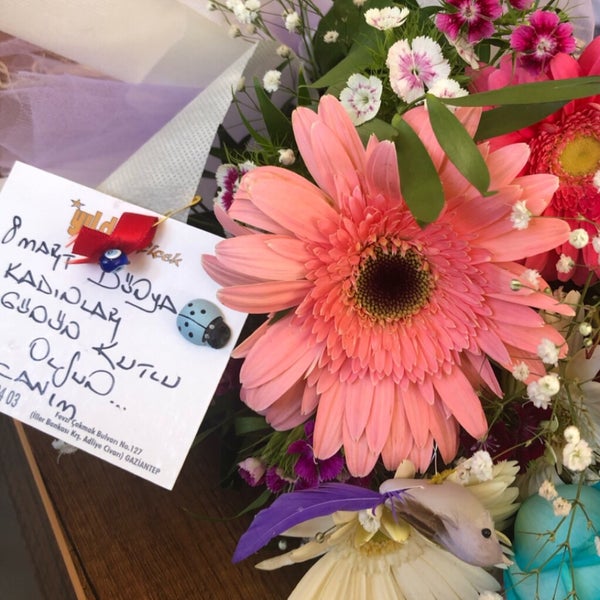 8 MART DÜNYA
KADINLAR
GÜNÜN KUTLU
OLSUN...
CANIM
03
Fevzi Çakmak Bulvarı No.127
(İller Bankası Karş. Adliye Civarı) GAZİANTEP